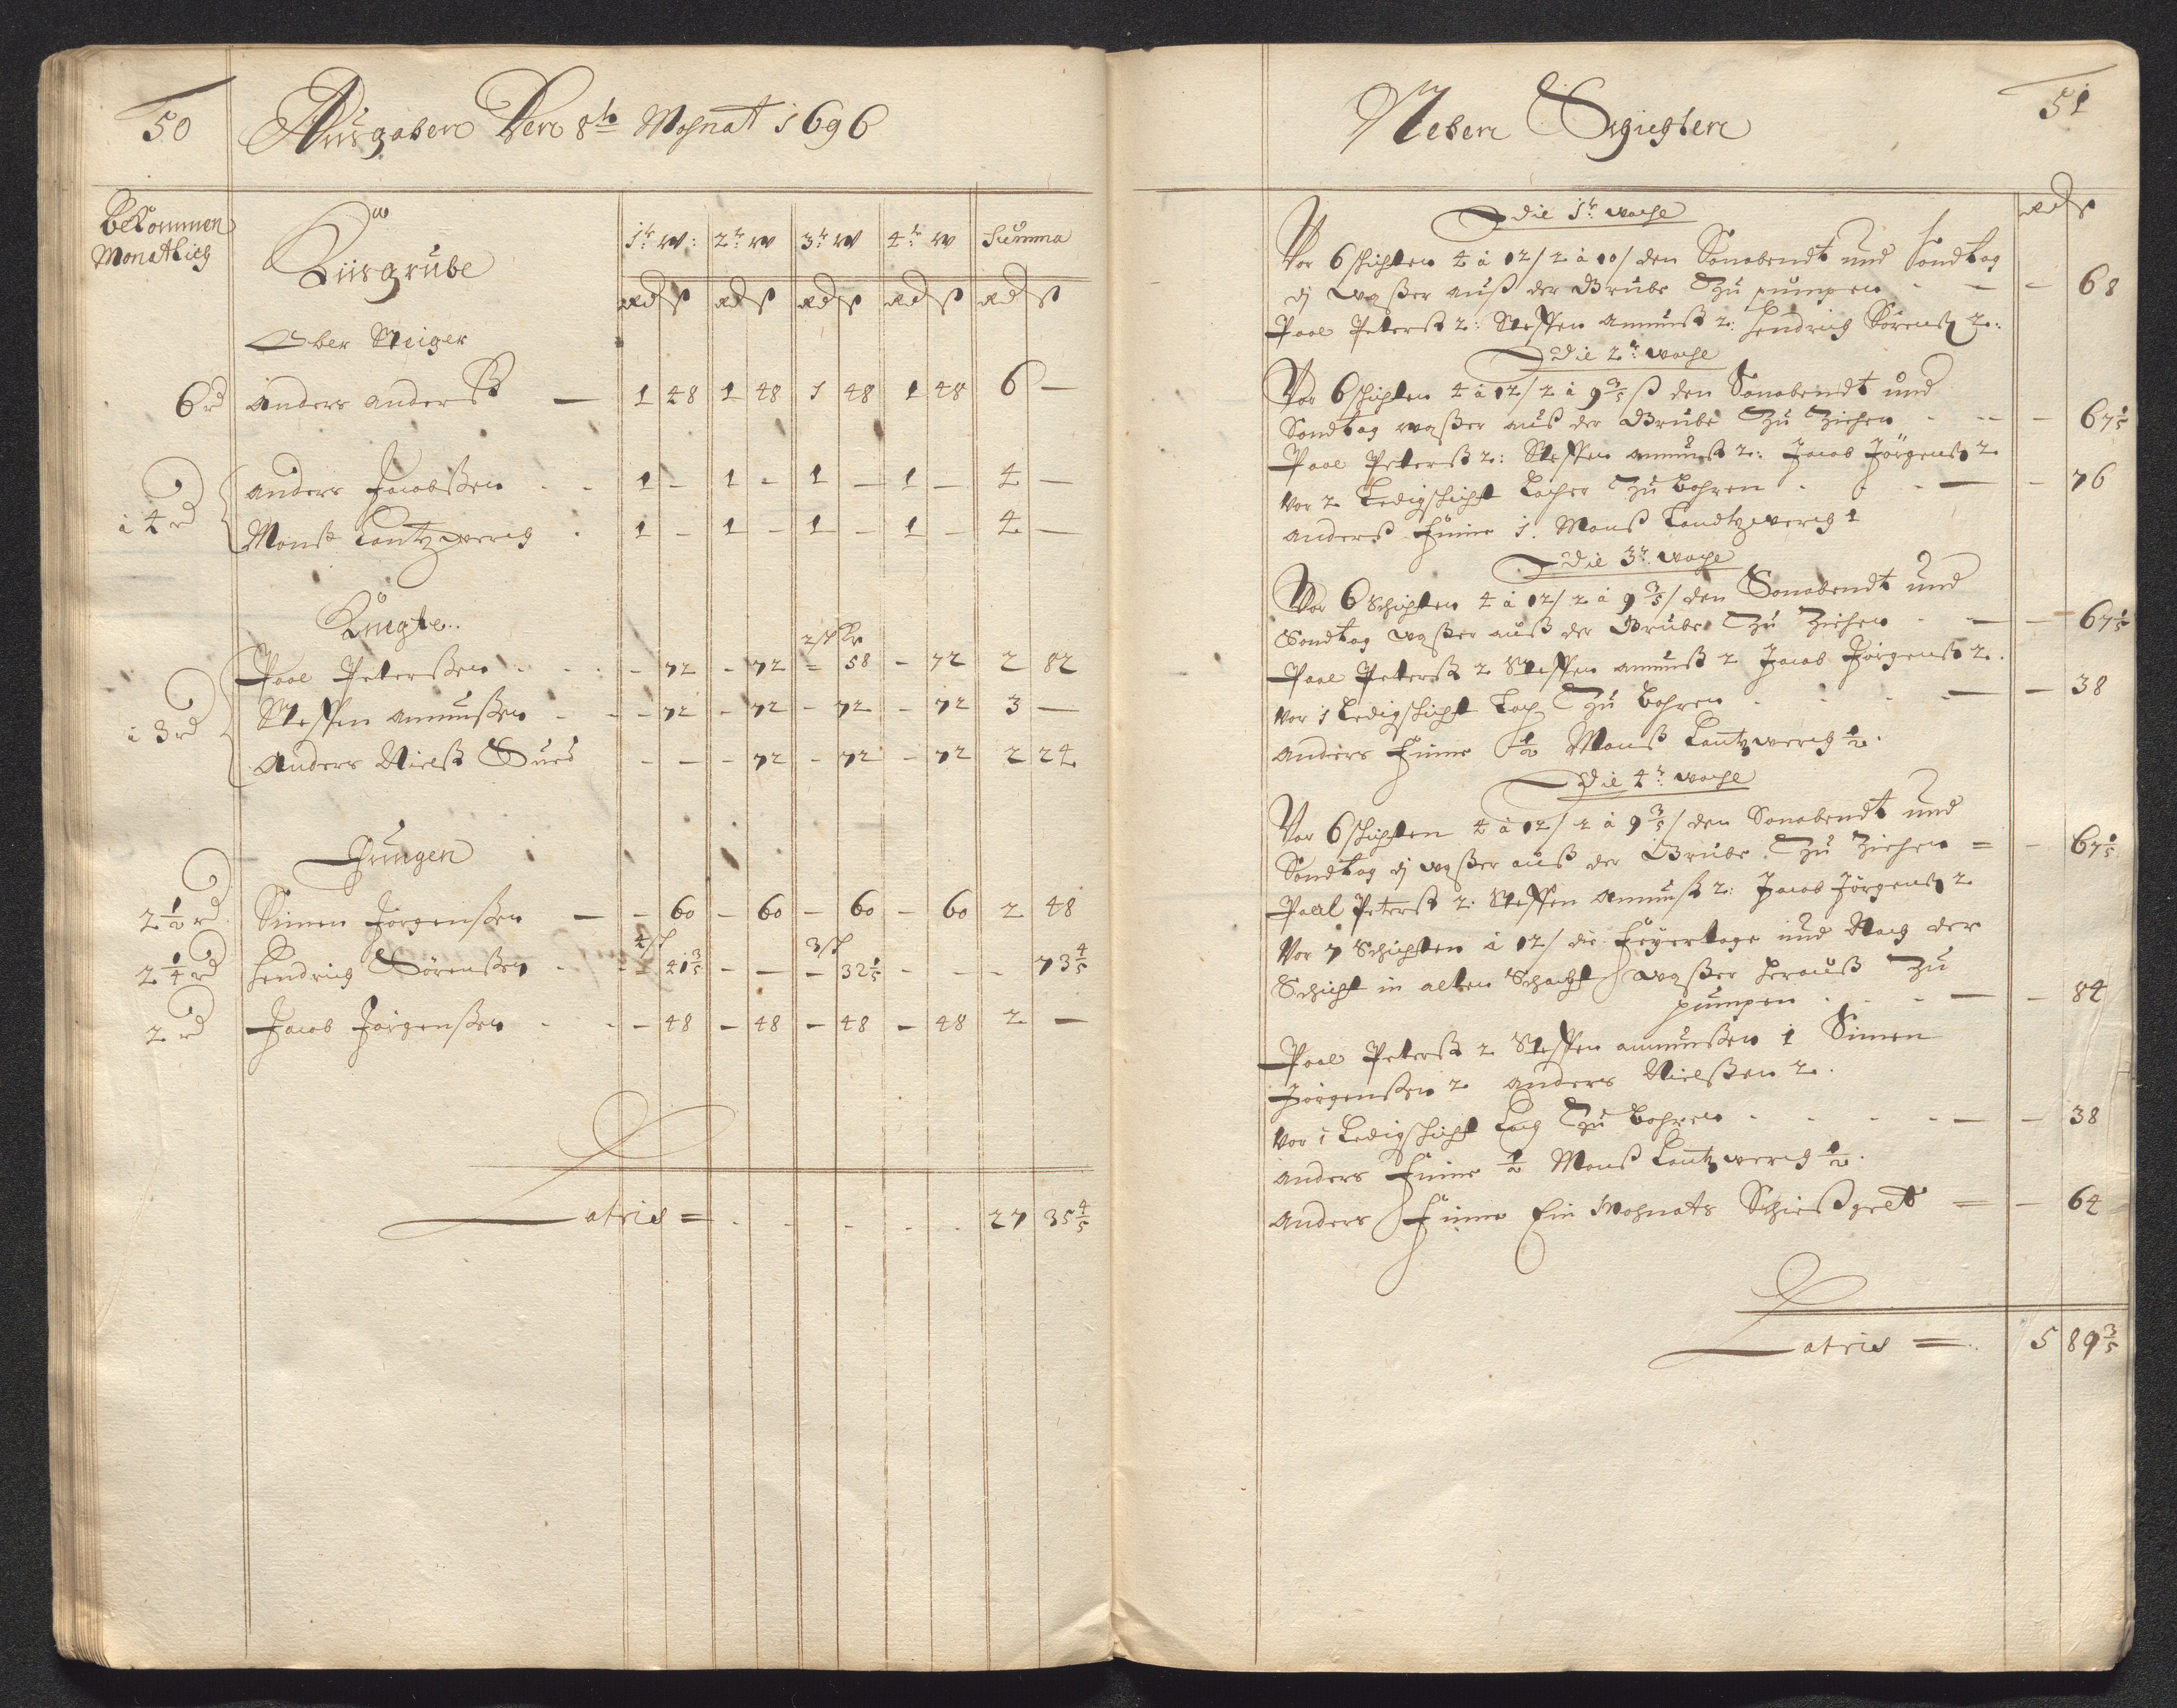 50
Ausgaben Den 8te Mohnat 1696
Bekommen
Monatlich
Kiisgrube
1te W: 2te W 3te W 4te W Summa
Rd ß Rd ß Rd ß Rd ß Rd ß
Ober Steiger
6 rd Anders Anderß — 1 48 1 48 1 48 1 48 6 —
à 4 rd Anders Jacobßen - - 1 - 1 - 1 - 1 - 4 —
Monß Lantzwerg - 1 - 1 - 1 - 1 - 4 —
Knechte..
2 sch Kr
à 3 rd Paol Peterßen - - - 72 - 72 - 58 - 72 2 82
Steffen Amunßen - - - 72 - 72 - 72 - 72 3 —
Anders Nielß Sued - - - 72 - 72 - 72 2 24
Jungen
2 1/2 rd Simen Jörgenßen — - 60 - 60 - 60 - 60 2 48
4 sch 3 sch
2 1/4 rd Hendrich Sörenßen - - 41 3/5 - — - 32 1/5 - - - 73 4/5
2 rd Jacob Jörgenßen - - - 48 - 48 - 48 - 48 2 —
Latris = - - - - - 27 35 4/5
51
Neben Schichten
Rd ß
Die 1te Woche
Vor 6 schichten 4 à 12/ 2 à 10/ den Sonabendt und Sondtag
dz Waßer auß der Grube Zu pumpen - - - 68
Paol Peterß 2: Steffen Amunß 2: Hendrich Sörenß 2:
Die 2te Woche
Vor 6 schichten 4 à 12/ 2 à 9 3/5 ß den Sonabendt und
Sondtag waßer auß der Grube Zu Ziehen - - - 67 1/5
Paol Peterß 2: Steffen Amunß 2: Jacob Jörgenß 2
Vor 2 Ledigschicht Locher Zu bohren - - - — - 76
Anderß Finne 1. Monß Landtzwerg 1
Die 3te Woche
Vor 6 Schichten 4 à 12/ 2 à 9 3/5/ den Sonabendt und
Sondtag Waßer auß der Grube Zu Ziehen - — - 67 1/5
Paol Peterß 2 Steffen Amunß 2 Jacob Jörgenß 2.
Vor 1 Ledigschicht Loch Zu bohren - - - — - 38
Anders Finne 1/2 Monß Lantzwerg 1/2.
Die 4te Woche
Vor 6 schichten 4 à 12/ 2 à 9 3/5/ den Sonabendt und
Sondtag dz Waßer auß der Grube Zu Ziehen = - 67 1/5
Paal Peterß 2. Steffen Amunß 2: Jacob Jörgenß 2
Vor 7 Schichten à 12/ die Feyertage und Nach der
Schicht in alten Schacht Waßer herauß Zu
pumpen - - - — - 84
Paol Peterß 2 Steffen Amunßen 1 Simen
Jörgenßen 2 Anders Nielßen 2.
Vor 1 Ledigschicht Loch Zu bohren - - - - — - 38
Anders Finne 1/2 Monß Lantzwerg 1/2.
Anders Finne Ein Mohnats Schießgelt = - 64
Latris = 5 89 3/5